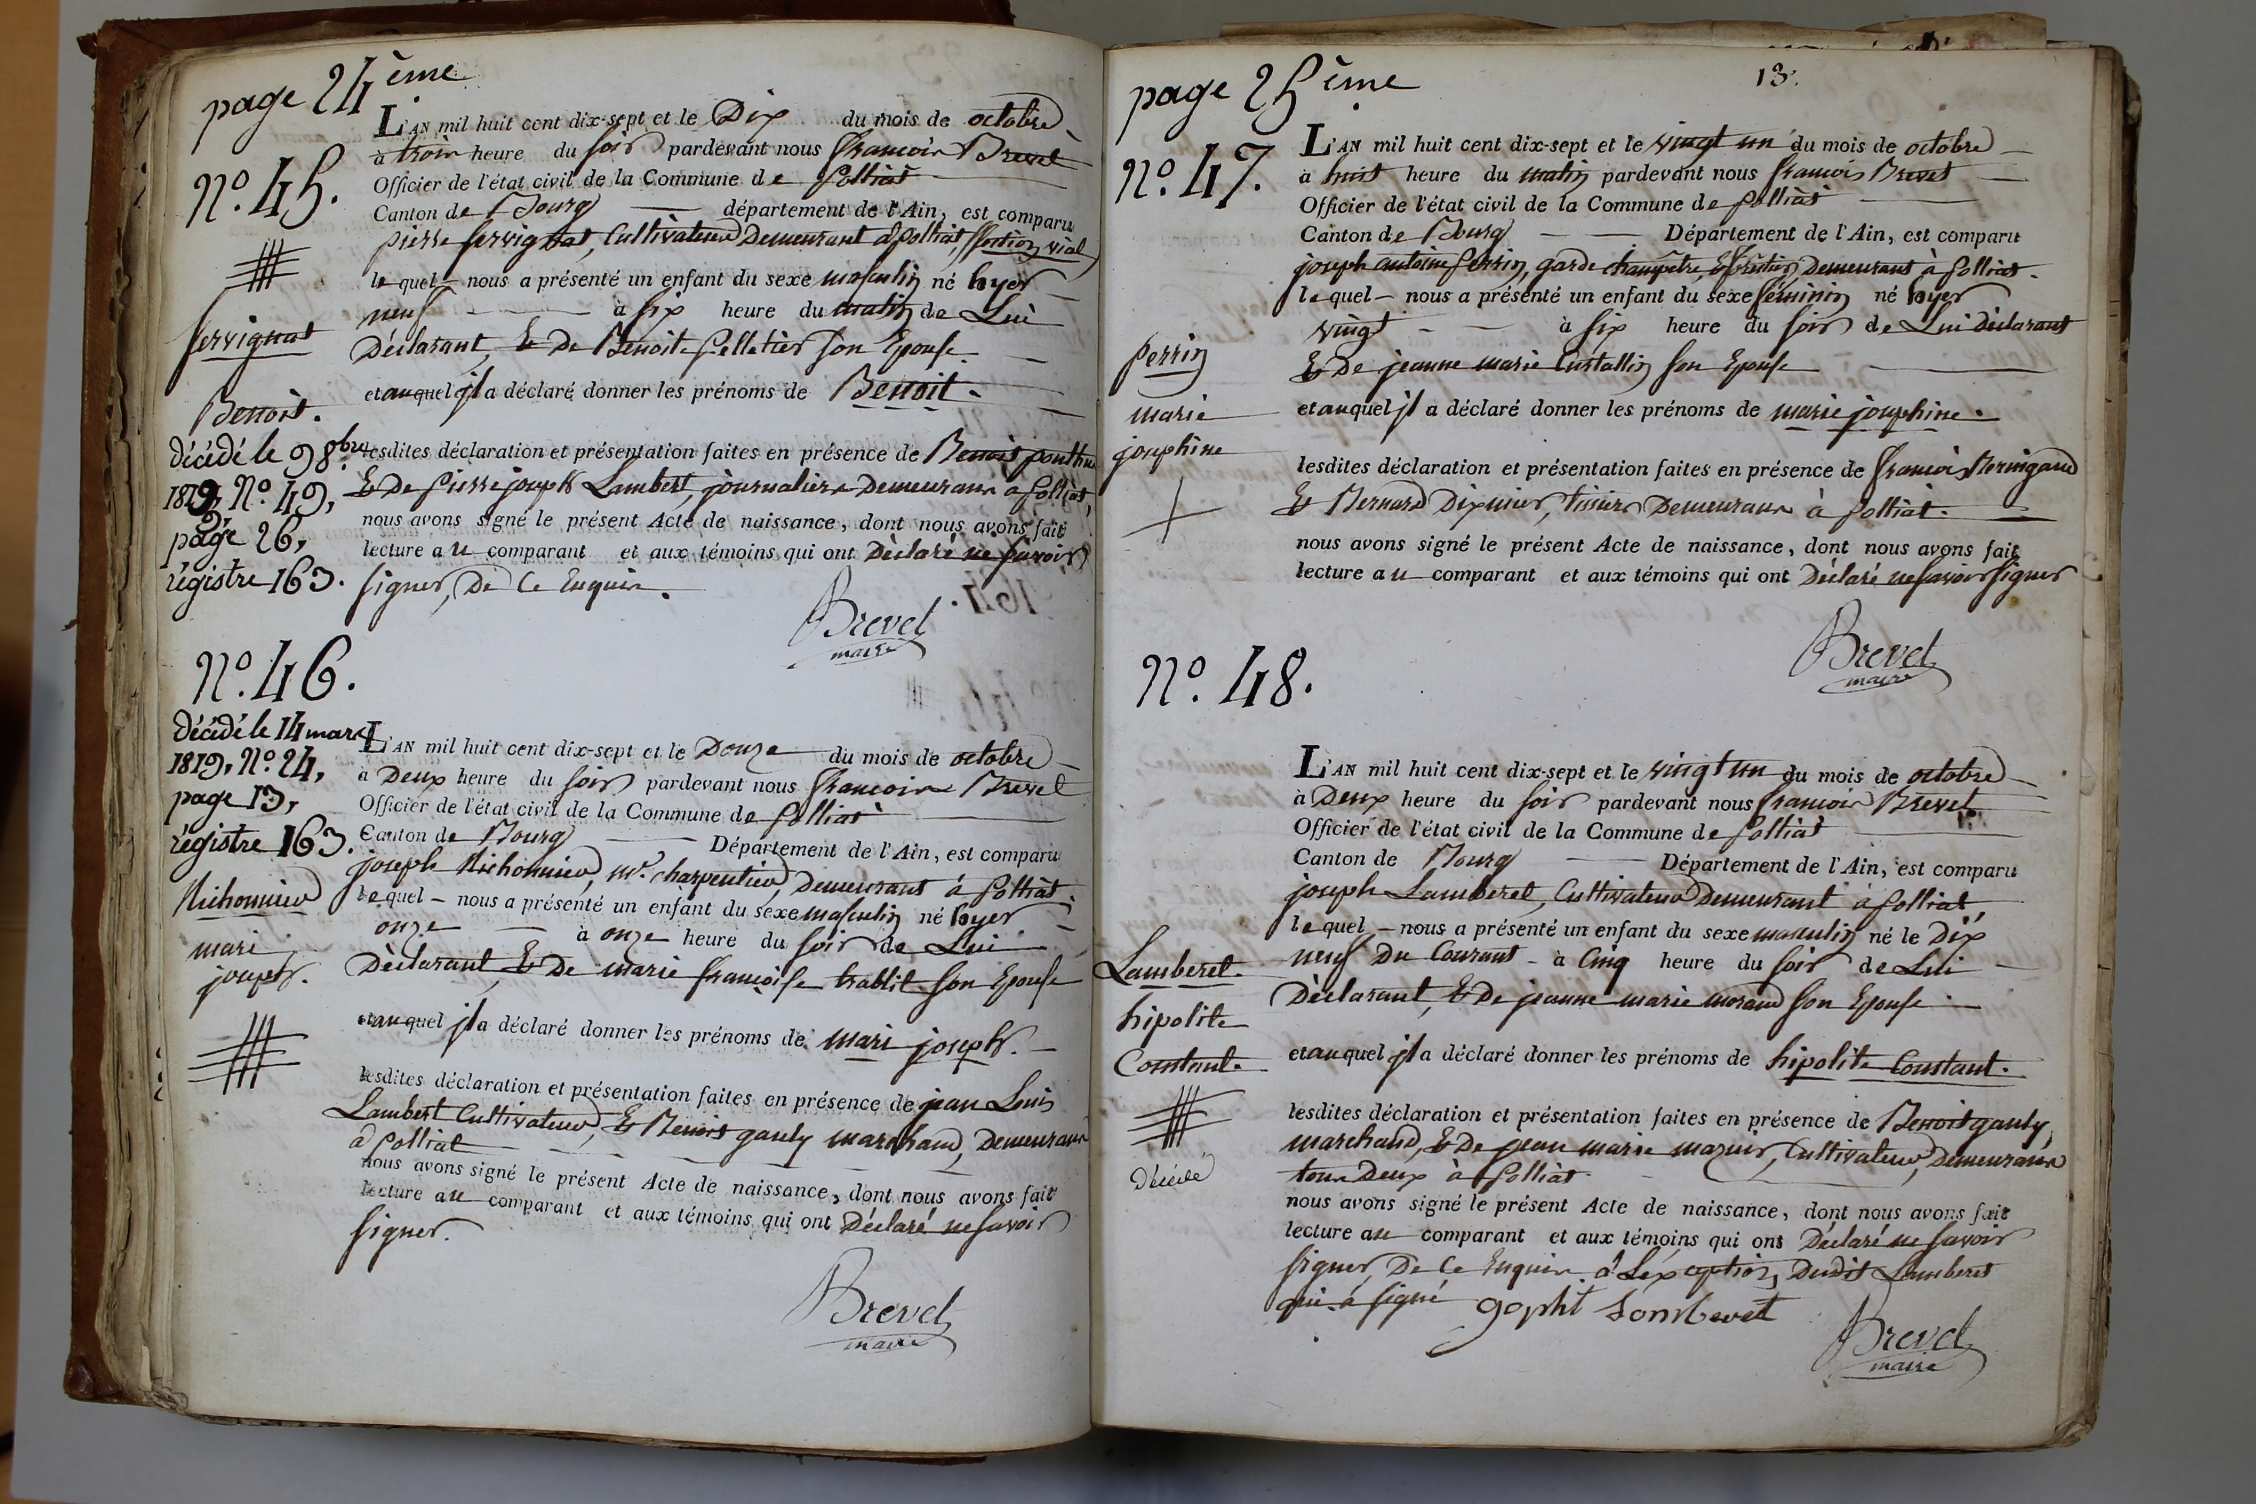 page 24ème
L'AN mil huit cent dix-sept et le Dix du mois de octobre
à trois heure du soir pardevant nous françois Brevet
nº. 45.
Officier de l'état civil de la Commune de polliat
Canton de Bourg département de l'Ain, est comparu
pierre servignat, Cultivateur Demeurant à polliat,
lequel nous a présenté un enfant du sexe masculin né hyer
neuf à six heure du matin de Lui
servignat
Déclarant, & De Benoite pelletier son Epouse.
et auquel jl a déclaré donner les prénoms de Benoit.
Benoit.
décédé le 9 8bre
lesdites déclaration et présentation faites en présence de Benoit
1819, Nº. 49,
& De pierre joseph Lambert, journaliers Demeurans a polliat,
nous avons signé le présent Acte de naissance, dont nous avons fait
page 26,
lecture au comparant et aux témoins qui ont Déclaré ne savoir
régistre 163.
signer, De Ce Enquis.
Brevet
maire
nº. 46.
décédé le 14 mars
L'AN mil huit cent dix-sept et le Douze du mois de octobre
1819, Nº. 24,
à Deux heure du soir pardevant nous françois Brevet
page 13,
Officier de l'état civil de la Commune de polliat
régistre 163.
Canton de Bourg Département de l'Ain, est comparu
joseph Richonnier, md. charpentier, Demeurant à polliat
Richonnier
lequel nous a présenté un enfant du sexe masculin né hyer
onze à onze heure du soir de Lui
mari
Déclarant & De marie françoise trablit son Epouse
joseph.
et auquel jl a déclaré donner les prénoms de mari joseph.
lesdites déclaration et présentation faites en présence de jean Louis
Lambert Cultivateur, & Benoit gauly marchand, Demeurans
à polliat
nous avons signé le présent Acte de naissance, dont nous avons fait
lecture au comparant et aux témoins qui ont Déclaré ne savoir
signer.
Brevet
maire
page 25ème
13.
L'AN mil huit cent dix-sept et le vingt un du mois de octobre
nº. 47.
à huit heure du matin pardevant nous françois Brevet
Officier de l'état civil de la Commune de polliat
Canton de Bourg Département de l'Ain, est comparu
joseph antoine perrin, garde champetre, Demeurant à polliat.
lequel nous a présenté un enfant du sexe féminin né hyer
vingt à six heure du soir de Lui Déclarant
perrin
& De jeanne marie Curtallin son Epouse
marie
et auquel jl a déclaré donner les prénoms de marie josephine.
josephine
lesdites déclaration et présentation faites en présence de françois
& Bernard Dixmier, tissiers Demeurans à polliat.
nous avons signé le présent Acte de naissance, dont nous avons fait
lecture au comparant et aux témoins qui ont Déclaré ne savoir signer
Brevet
maire
nº. 48.
L'AN mil huit cent dix-sept et le vingt un du mois de octobre
à Deux heure du soir pardevant nous françois Brevet
Officier de l'état civil de la Commune de polliat
Canton de Bourg Département de l'Ain, est comparu
joseph Lamberet, Cultivateur Demeurant à polliat
lequel nous a présenté un enfant du sexe masculin né le Dix
Lamberet.
neuf Du Courant à Cinq heure du soir de Lui
Déclarant, & De jeanne marie morand son Epouse
hipolite
Constant.
et auquel jl a déclaré donner les prénoms de hipolite Constant.
lesdites déclaration et présentation faites en présence de Benoit gauly,
marchand, & De jean marie mazuir, Cultivateur, Demeurans
Décédé
tous Deux à polliat
nous avons signé le présent Acte de naissance, dont nous avons fait
lecture au comparant et aux témoins qui ont Déclaré ne savoir
signer De Ce Enquis à L'exception, Dudit Lamberet
qui a signé
Brevet
maire